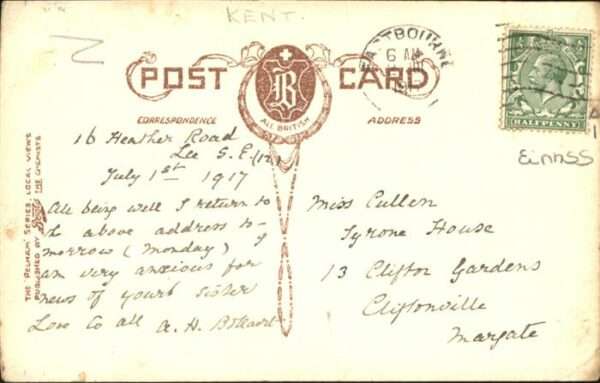 KENT.
POST CARD
B
ALL BRITISH
CORRESPONDENCE
ADDRESS
EASTBOURNE
6 AM
HALFPENNY
EinnSS
THE "PELHAM" SERIES, LOCAL VIEWS
PUBLISHED BY Boots THE CHEMISTS
16 Heather Road
Lee S.E. (12)
July 1st 1917
All being well I return to
above address to-
morrow (Monday) I
am very anxious for
news of your sister
Love to all A. H.
Miss Cullen
Tyrone House
13 Clifton Gardens
Cliftonville
Margate